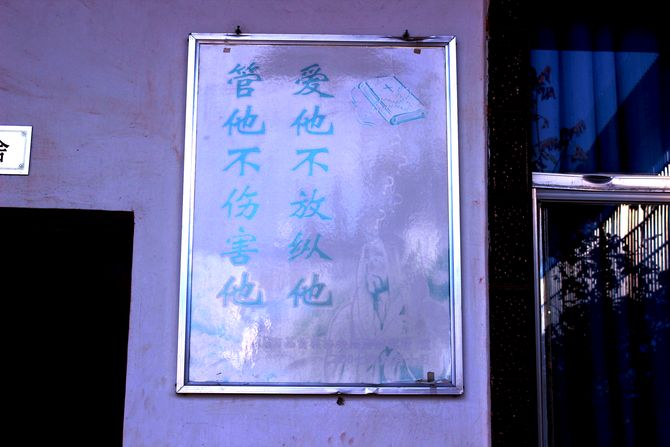 爱他不放纵他
管他不伤害他